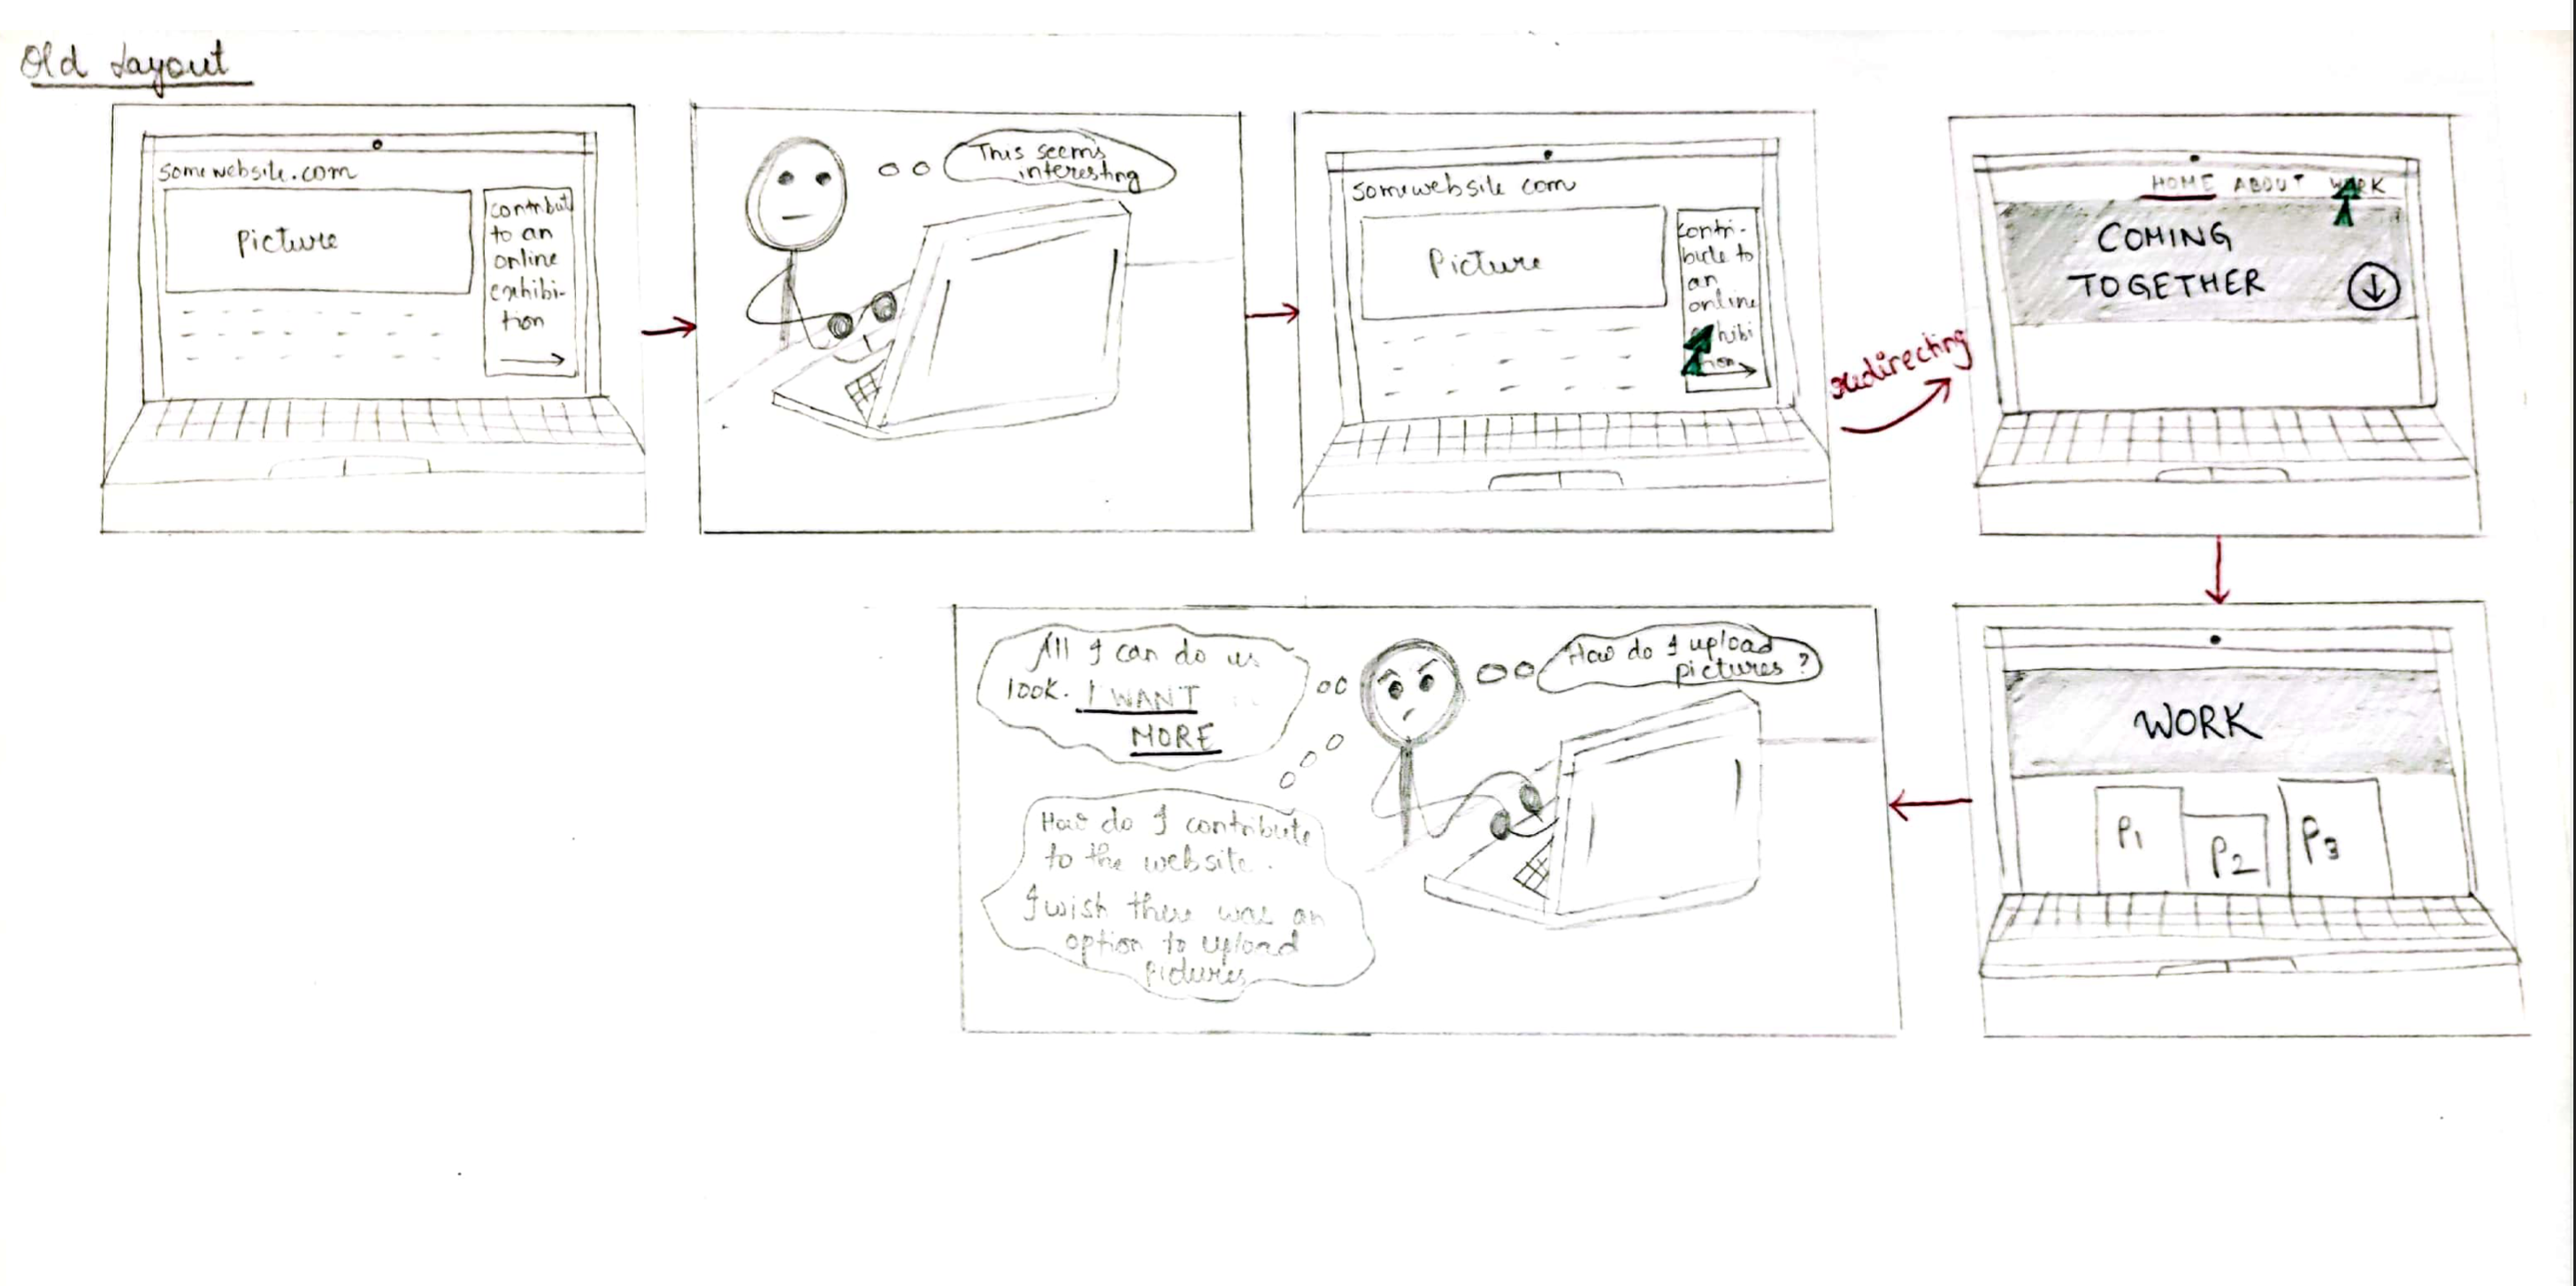 Old Layout
somewebsite.com
Picture
contribut
to an
online
exhibi-
tion
This seems
interesting
somewebsite com
Picture
contri-
bute to
an
online
hibi
redirecting
HOME ABOUT WORK
COMING
TOGETHER
WORK
P1
P2
P3
How do I upload
pictures?
All I can do is
look. I WANT
MORE
How do I contribute
to the website.
I wish there was an
option to upload
pictures